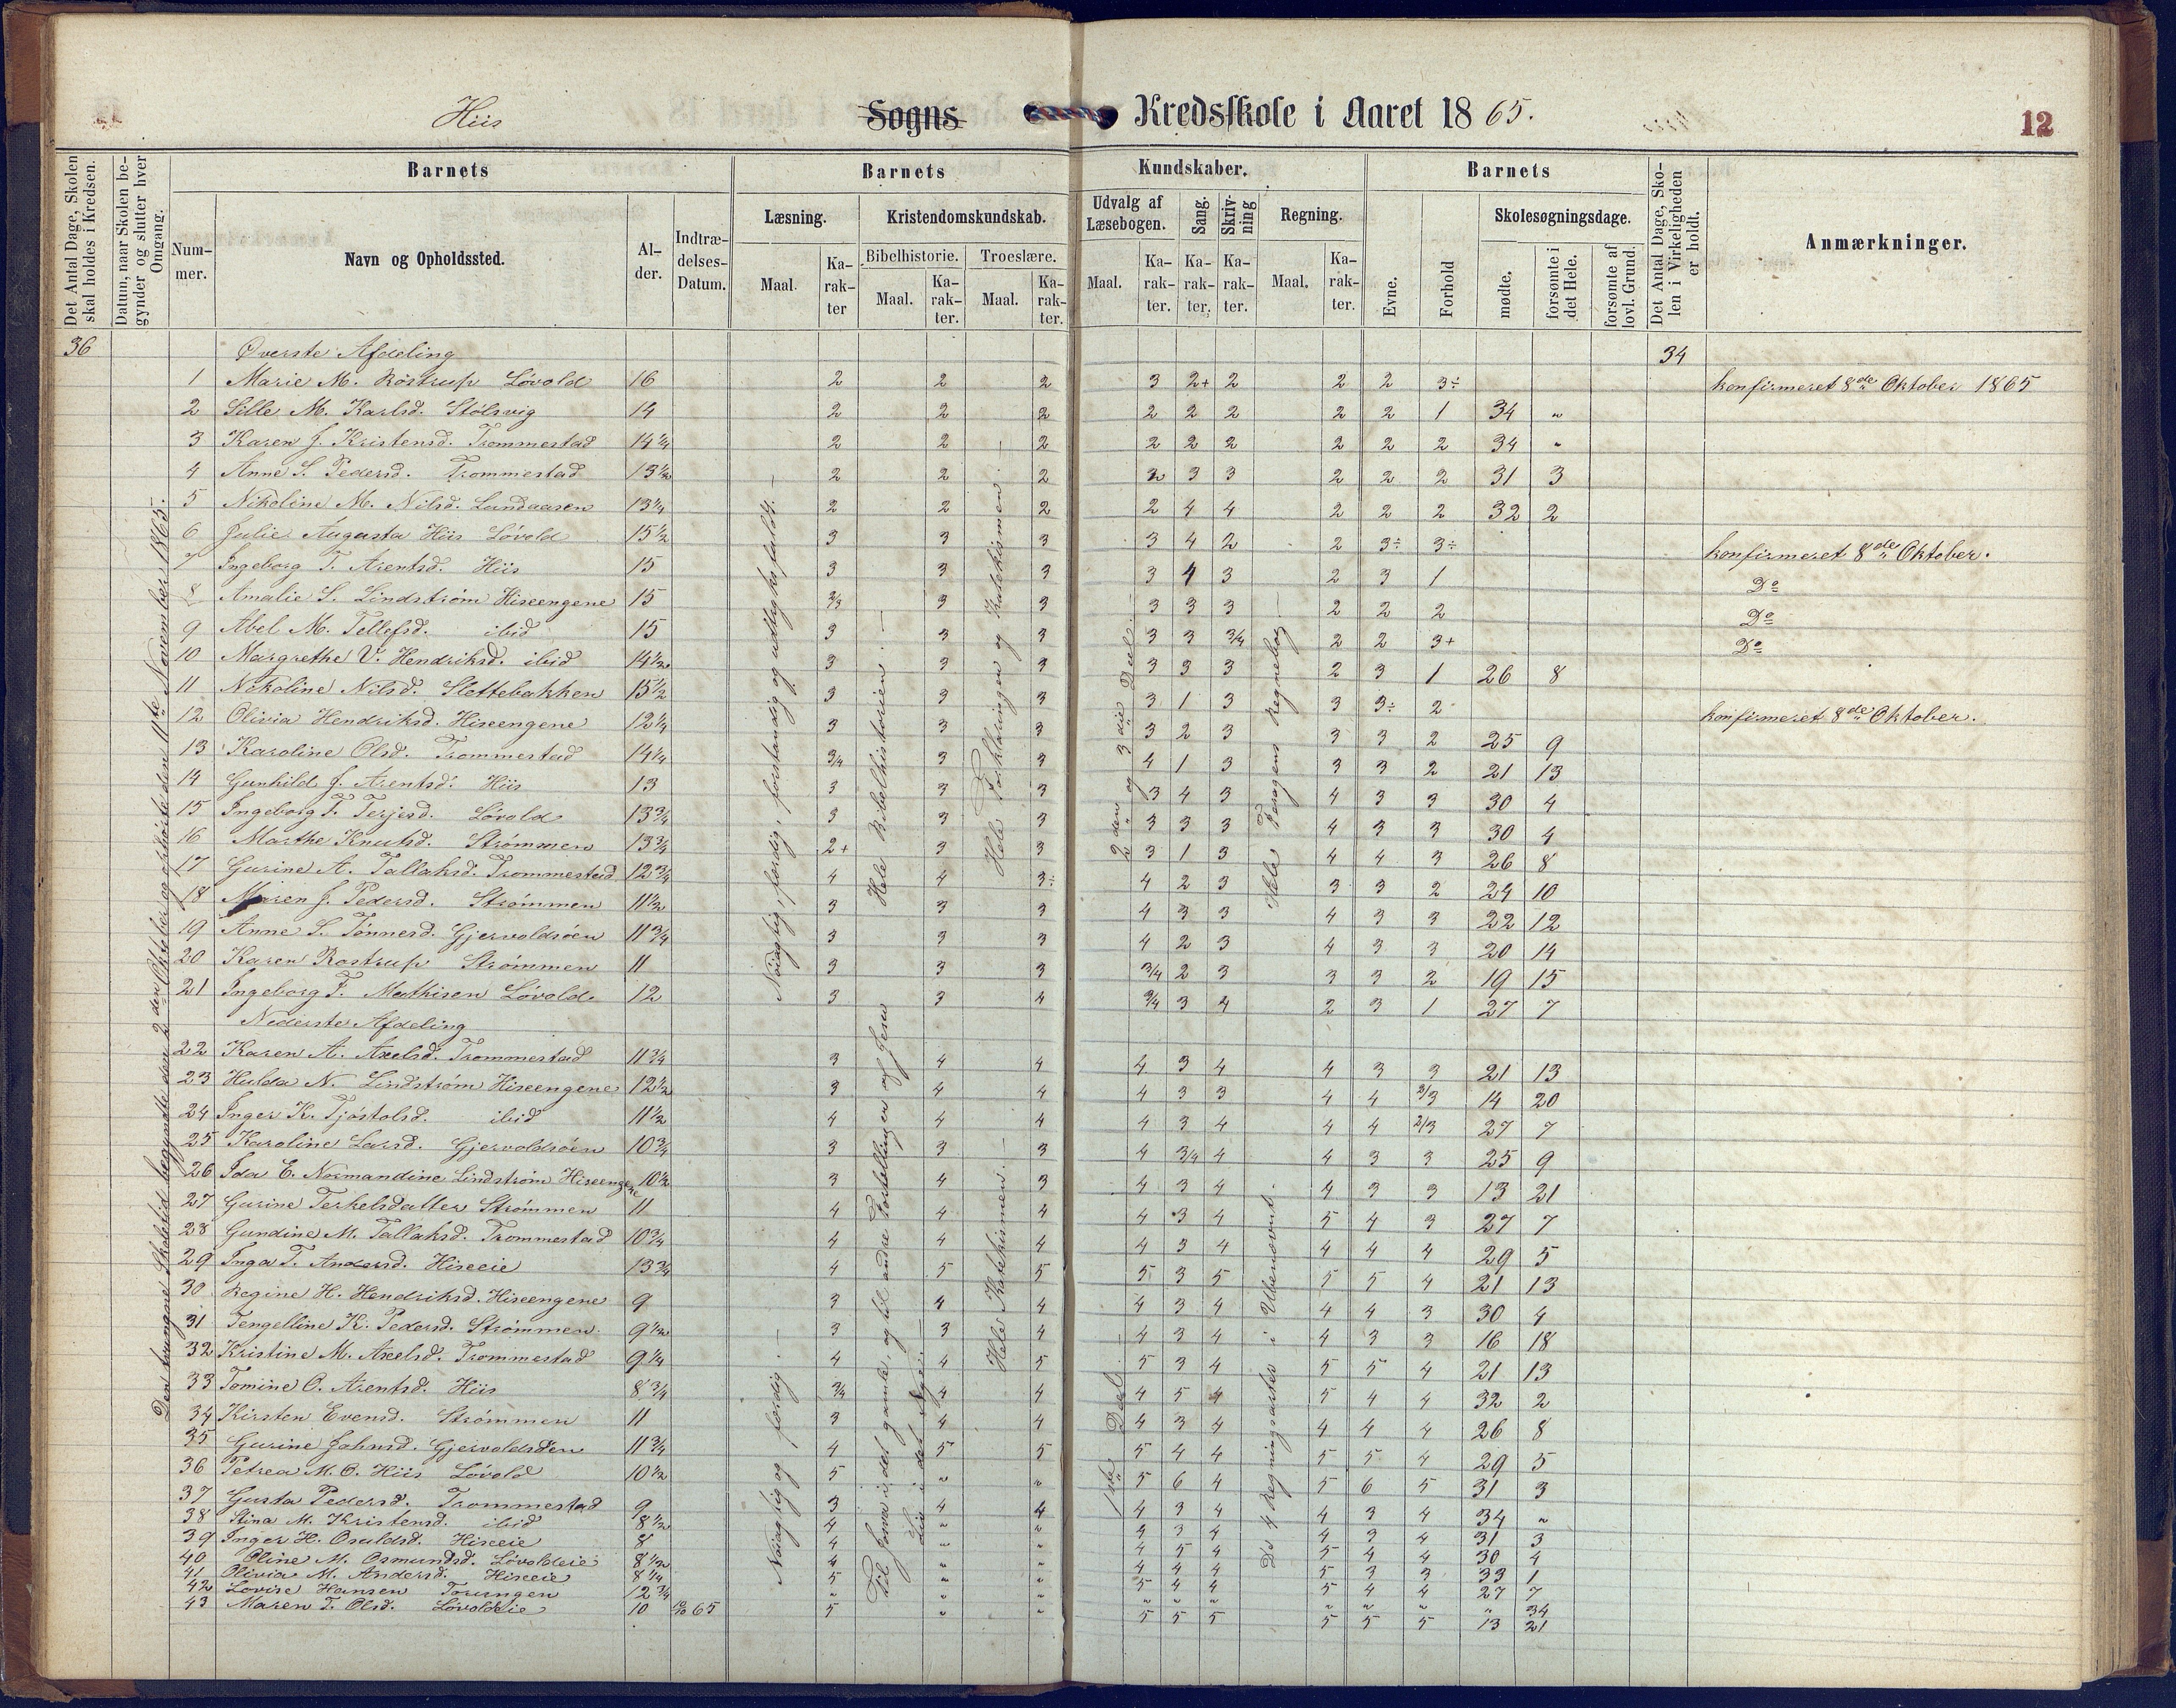 Hiis Sogns Kredsskole i Aaret 1865.
12
Det Antal Dage, Skolen skal holdes i Kredsen.
Datum, naar Skolen begynder og slutter hver Omgang.
Barnets
Nummer.
Navn og Opholdssted.
Alder.
Indtrædelses-Datum.
Barnets Kundskaber.
Læsning.
Maal.
Karakter
Kristendomskundskab.
Bibelhistorie.
Maal.
Karakter.
Troeslære.
Maal.
Karakter.
Udvalg af Læsebogen.
Maal.
Karakter.
Sang.
Karakter.
Skrivning
Karakter.
Regning.
Maal.
Karakter.
Barnets
Evne.
Forhold
Skolesøgningsdage.
mødte.
forsømte i det Hele.
forsømte af lovl. Grund.
Det Antal Dage, Skolen i Virkeligheden er holdt.
Anmærkninger.
36 Øverste Afdeling 34
1 Marie M. Röstrup Lövold 16 2 2 2 3 2+ 2 2 2 3÷ konfirmeret 8de Oktober 1865
2 Sille M. Karlsd. Stölsvig 14 2 2 2 2 2 2 2 2 1 34 "
3 Karen J. Kristensd. Trommestad 14 1/4 2 2 2 2 2 2 2 2 2 34 "
4 Anne S. Pedersd. Trommestad 13 1/2 2 2 2 3 3 2 2 2 31 3
5 Nikoline M. Nilsd. Lundaasen 13 1/4 2 2 2 2 4 4 2 2 2 32 2
6 Julie Augusta Hiis Lövold 15 1/2 3 3 3 3 4 2 2 3÷ 3÷ konfirmeret 8de Oktober.
7 Ingeborg T. Arentsd. Hiis 15 3 3 3 3 4 3 2 3 1 Do
8 Amalie S. Lindström Hiseengene 15 2/3 3 3 3 3 3 2 2 2 Do
9 Abel M. Tellefsd. ibid 15 3 3 3 3 3 3/4 2 2 3+ Do
10 Margrethe V. Hendriksd. ibid 14 1/2 3 3 3 3 3 3 2 3 1 26 8
11 Nikoline Nilsd. Slettebakken 15 1/2 3 3 3 3 1 3 3 3÷ 2 konfirmeret 8de Oktober.
12 Olivia Hendriksd. Hiseengene 12 1/4 3 3 3 3 2 3 3 3 2 25 9
13 Karoline Olsd. Trommestad 14 1/4 3/4 3 3 4 1 3 3 3 2 21 13
14 Gunhild J. Arentsd. Hiis 13 3 3 3 3 4 3 4 3 3 30 4
15 Ingeborg T. Terjesd. Lövold 13 3/4 3 3 3 3 3 3 4 3 3 30 4
16 Marthe Knutsd. Strömmen 13 3/4 2+ 3 3 3 1 3 4 4 3 26 8
17 Gurine A. Tallaksd. Trommestad 12 3/4 4 4 3÷ 4 2 3 3 3 2 24 10
18 Maren J. Pedersd. Strömmen 11 1/2 3 3 3 4 3 3 4 3 3 22 12
19 Anne S. Tönnesd. Gjervoldsöen 11 3/4 3 3 3 4 2 3 4 3 3 20 14
20 Karen Rostrup Strömmen 11 3 3 3 3/4 2 3 3 3 2 19 15
21 Ingeborg F. Mathisen Lövold 12 3 3 4 3/4 3 4 2 3 1 27 7
Nederste Afdeling
22 Karen A. Axelsd. Trommestad 11 3/4 3 4 4 4 3 4 4 3 3 21 13
23 Hulda N. Lindström Hiseengene 12 1/2 3 4 4 4 3 3 4 4 2/3 14 20
24 Inger K. Tjöstolsd. ibid 11 1/2 4 4 4 4 3 4 4 4 2/3 27 7
25 Karoline Larsd. Gjervoldsöen 10 3/4 3 3 3 4 3/4 4 4 3 3 25 9
26 Ida E. Normandine Lindström Hiseengene 10 1/2 3 4 3 4 3 4 4 3 3 13 21
27 Gurine Terkelsdatter Strömmen 11 4 4 4 4 3 4 5 4 3 27 7
28 Gundine M. Tallaksd. Trommestad 10 3/4 4 4 4 4 3 4 4 4 4 29 5
29 Inga T. Andersd. Hiseeie 13 3/4 4 5 5 5 3 5 5 5 4 21 13
30 Regine H. Hendriksd. Hiseengene 9 3 4 4 4 3 4 4 4 3 30 4
31 Tengelline K. Pedersd. Strömmen. 9 1/2 3 3 4 4 3 4 4 3 3 16 18
32 Kristine M. Axelsd. Trommestad 9 1/4 4 4 5 5 3 4 5 5 4 21 13
33 Tomine O. Arentsd. Hiis 8 3/4 3/4 4 4 4 5 4 5 4 4 32 2
34 Kirsten Evensd. Strömmen 11 3 4 4 4 3 4 4 4 4 26 8
35 Gurine Jahnsd. Gjervoldsöen 11 3/4 4 5 5 5 4 4 5 5 4 29 5
36 Petrea M. O. Hiis Lövold 10 1/2 5 " " 5 6 4 5 6 5 31 3
37 Gusta Pedersd. Trommestad 9 3 4 4 4 3 4 4 3 4 34 "
38 Stina M. Kristensd. ibid 8 1/2 4 " " 4 3 4 4 3 4 31 3
39 Inger H. Osuldsd. Hiseeie 8 4 " " 4 5 4 5 4 4 30 4
40 Oline M. Osmundsd. Lövoldeie 8 1/2 4 " " 4 4 4 5 3 3 33 1
41 Olivia M. Andersd. Hiseeie 8 1/4 5 " " 5 4 4 5 4 4 27 7
42 Lovise Hansen Torungen 12 3/4 " " " " " " " " " " 34
43 Maren T. Olsd. Lövoldeie 10 10/10 65 5 " " 5 5 5 5 5 5 13 21
Den tvungne Skoletid begyndte den 2den Oktober og ophörte den 11te November 1865.
Nöiagtig, færdig, forstandig og udtryksfuldt. —
Hele Bibelhistorien. —
Hele Forklaringen og Katekismen. —
2den og 3die Deel. —
Hele Pesagens Regnebog. —
Nöiagtig og færdig. —
Til Josva i det gamle, og til andre Fortællinger af Jesu Liv i det Nye. —
Hele Katekismen. —
1ste Deel. —
De 4 Regningsarter i Ubenævnt.